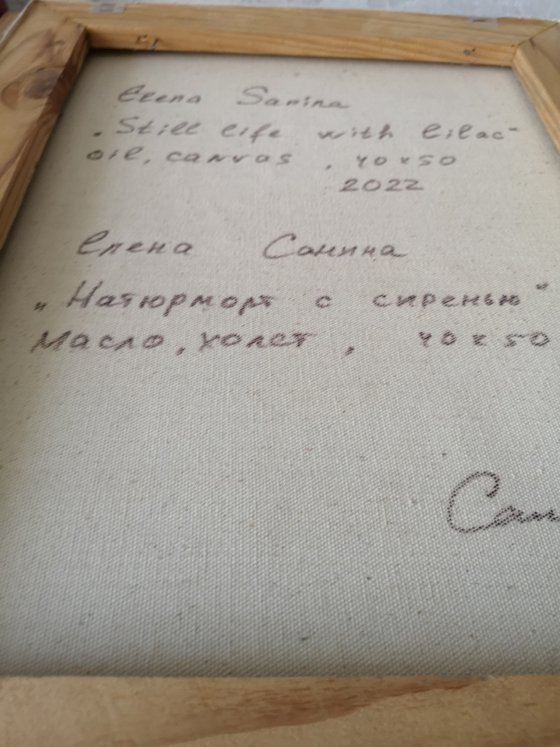 Elena Sanina
"Still life with lilac"
oil, canvas, 40x50
2022
Елена Санина
„Натюрморт с сиренью"
Масло, холст, 40x50
Сан